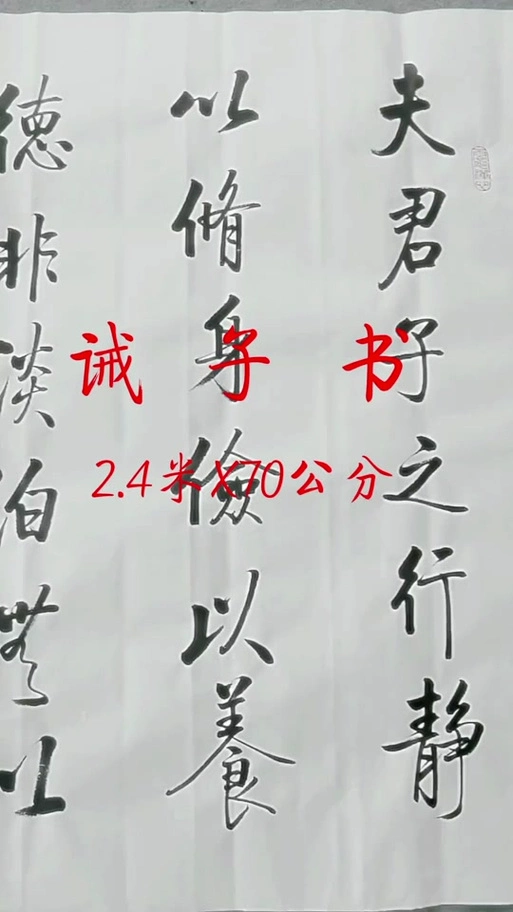 夫君子之行静
以脩身儉以養
德非淡泊無以
诫子书
2.4米X70公分